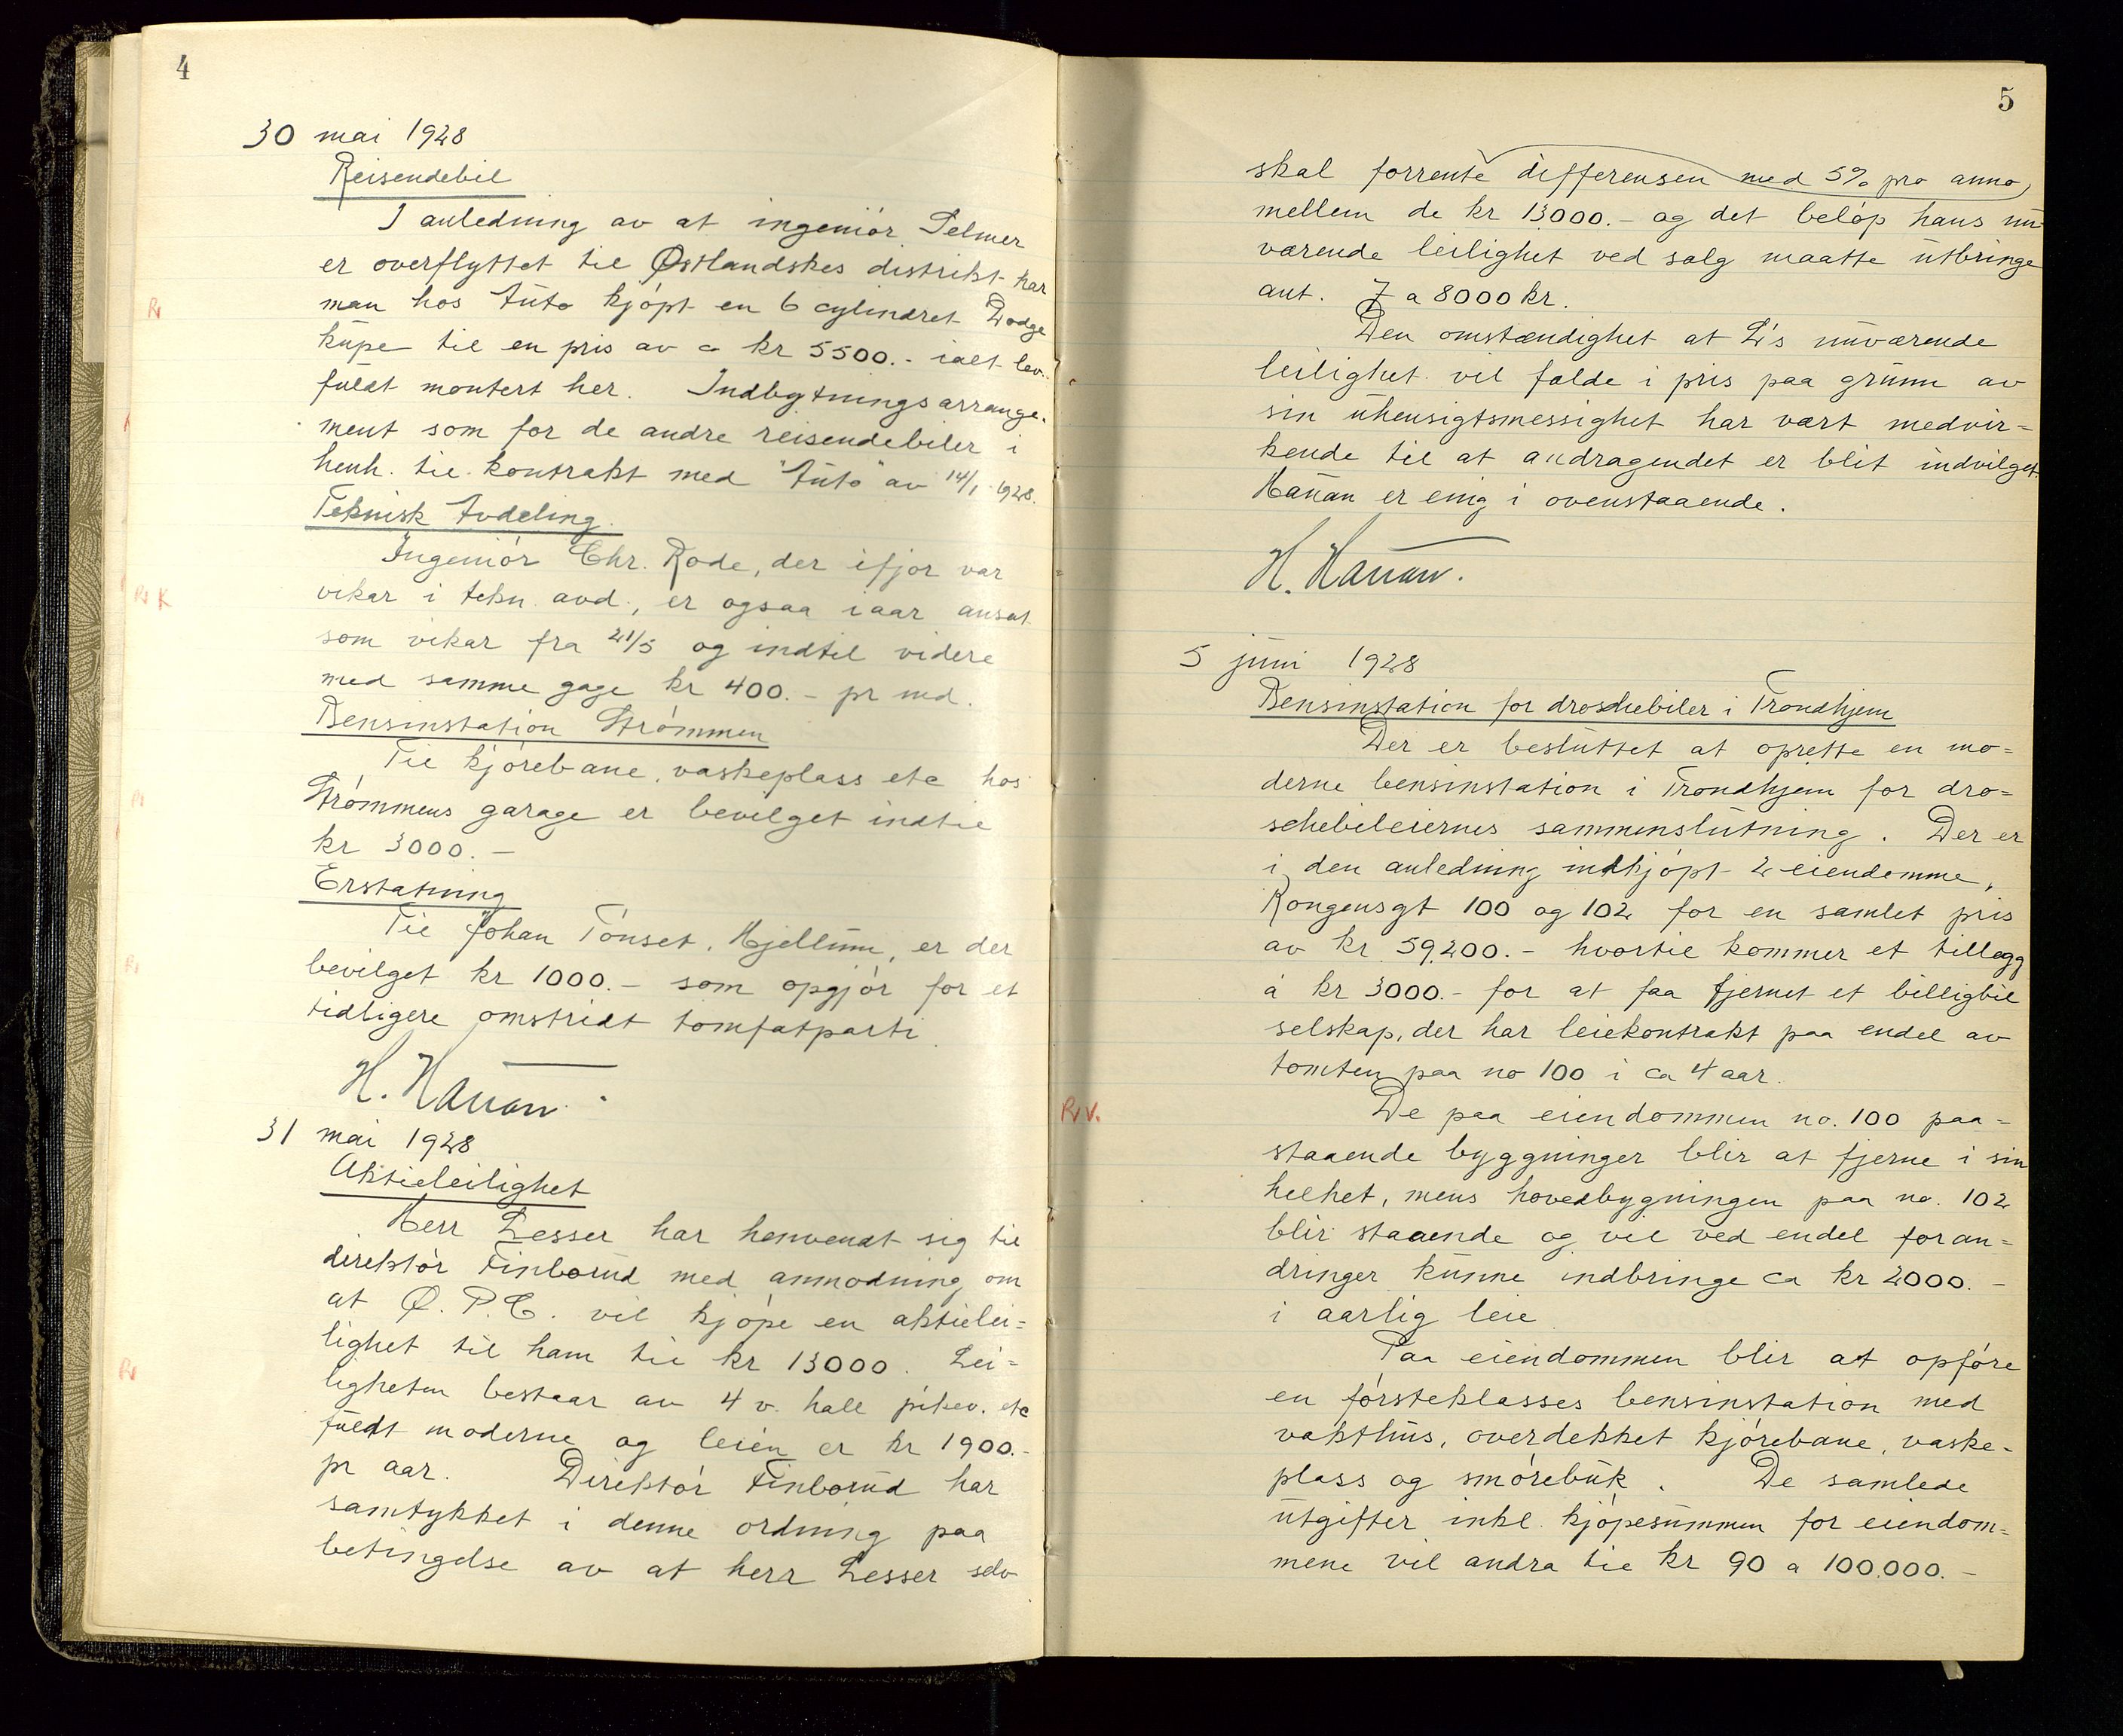 4
30 mai 1928
Reisendebil
I anledning av at ingeniør Selmer
er overflyttet til Østlandskes distrikt har
man hos Auto kjøpt en 6 cylindret Dodge
kupe til en pris av ca kr 5500.- ialt lev.
fuldt montert her. Indbytningsarrange-
ment som for de andre reisendebiler i
henh. til kontrakt med "Auto" av 14/1 1928.
Teknisk Avdeling.
Ingeniør Chr. Rode, der ifjor var
vikar i tekn. avd., er ogsaa iaar ansat
som vikar fra 21/5 og indtil videre
med samme gage kr 400.- pr md.
Bensinstation Strømmen
Til kjørebane, vaskeplass etc hos
Strømmens garage er bevilget indtil
kr 3000.-
Erstatning
Til Johan Tønset, Hjellum, er der
bevilget kr 1000.- som opgjør for et
tidligere omstridt tomfatparti.
H. Hanan.
31 mai 1928
Aktieleilighet
Herr Lesser har henvendt sig til
direktør Finborud med anmodning om
at Ø.P.C. vil kjøpe en aktielei=
lighet til ham til kr 13000. Lei=
ligheten bestaar av 4 v. hall pikev. etc
fuldt moderne og leien er kr 1900.-
pr aar. Direktør Finborud har
samtykket i denne ordning paa
betingelse av at herr Lesser selv
5
skal forrente differensen med 5% pro anno,
mellem de kr 13000.- og det beløp hans nu-
værende leilighet ved salg maatte utbringe
ant. 7 a 8000 kr.
Den omstændighet at L's nuværende
leilighet vil falde i pris paa grunn av
sin uhensigtsmessighet har vært medvir=
kende til at andragendet er blit indvilget.
Hanan er enig i ovenstaaende.
H. Hanan.
5 juni 1928
Bensinstation for droschebiler i Trondhjem
Der er besluttet at oprette en mo=
derne bensinstation i Trondhjem for dro=
schebileiernes sammenslutning. Der er
i den anledning indkjøpt 2 eiendomme,
Kongensgt 100 og 102 for en samlet pris
av kr 59.200.- hvortil kommer et tillegg
à kr 3000.- for at faa fjernet et billigbil
selskap, der har leiekontrakt paa endel av
tomten paa no 100 i ca 4 aar.
Rv.
De paa eiendommen no. 100 paa=
staaende byggninger blir at fjerne i sin
helhet, mens hovedbygningen paa no. 102
blir staaende og vil ved endel foran=
dringer kunne indbringe ca kr 2000.-
i aarlig leie
Paa eiendommen blir at opføre
en førsteklasses bensinstation med
vakthus, overdekket kjørebane, vaske-
plass og smørebuk. De samlede
utgifter inkl. kjøpesummen for eiendom=
mene vil andra til kr 90 a 100.000.-